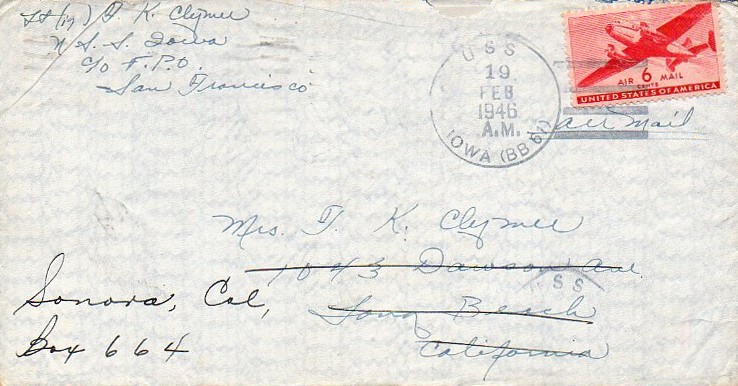 Lt (jg) T. K. Clymer
U.S.S. Iowa
c/o F.P.O.
San Francisco
USS
19
FEB
1946
A.M.
IOWA (BB 61)
6
CENTS
AIR MAIL
UNITED STATES OF AMERICA
Air Mail
Mrs. T. K. Clymer
1043 Dawson Ave.
Long Beach
California
Sonora, Cal,
Box 664
SS